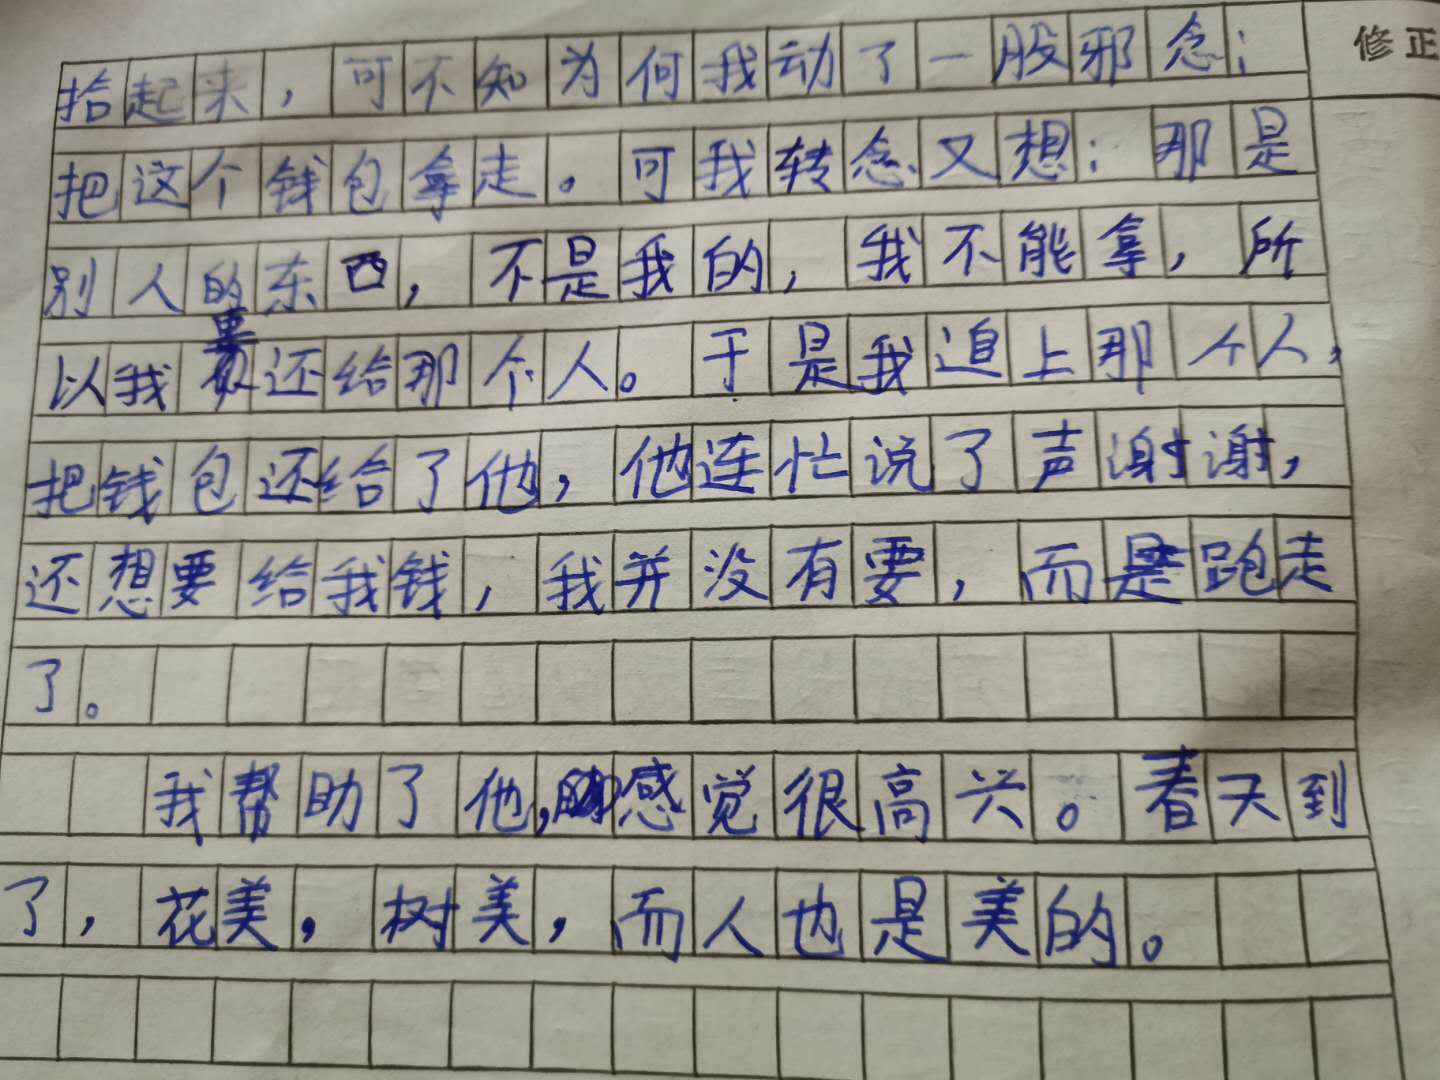 修正
拾起来，可不知为何我动了一股邪念：
把这个钱包拿走。可我转念又想：那是
别人的东西，不是我的，我不能拿，所
以我要还给那个人。于是我追上那个人，
把钱包还给了他，他连忙说了声谢谢，
还想要给我钱，我并没有要，而是跑走
了。
我帮助了他，感觉很高兴。春天到
了，花美，树美，而人也是美的。